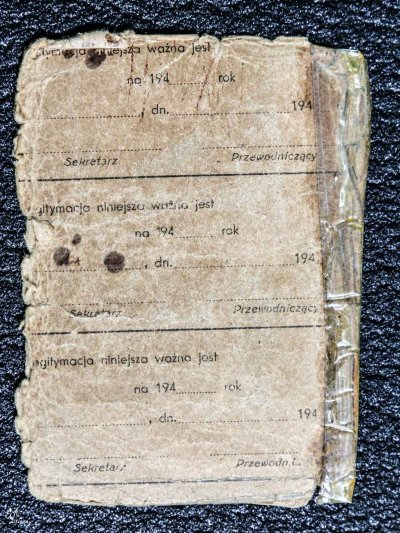 legitymacja niniejsza ważna jest
na 194........ rok
................, dn. ........................ 194
Sekretarz Przewodniczący
legitymacja niniejsza ważna jest
na 194........ rok
................, dn. ........................ 194
Sekretarz Przewodniczący
legitymacja niniejsza ważna jest
na 194........ rok
................, dn. ........................ 194
Sekretarz Przewodn